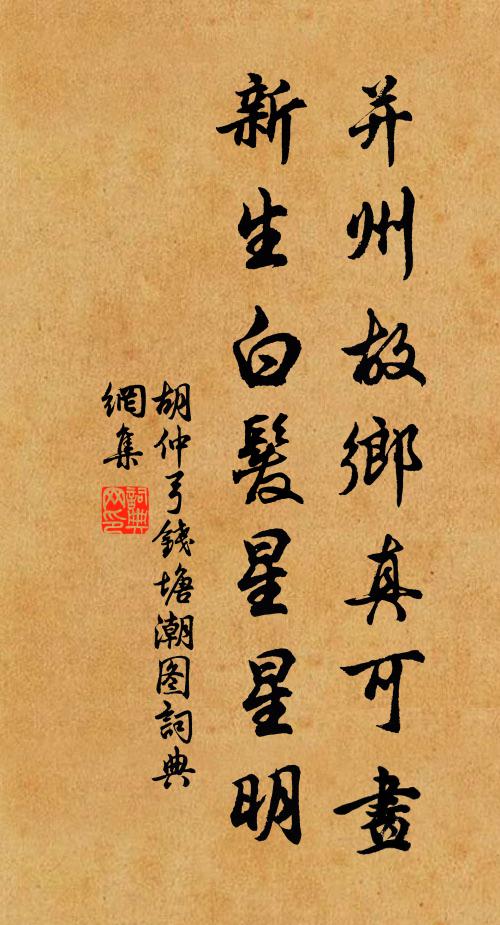 并州故鄉真可畫
新生白髮星星明
胡仲弓錢塘潮图詞典
網集
詞典
网印